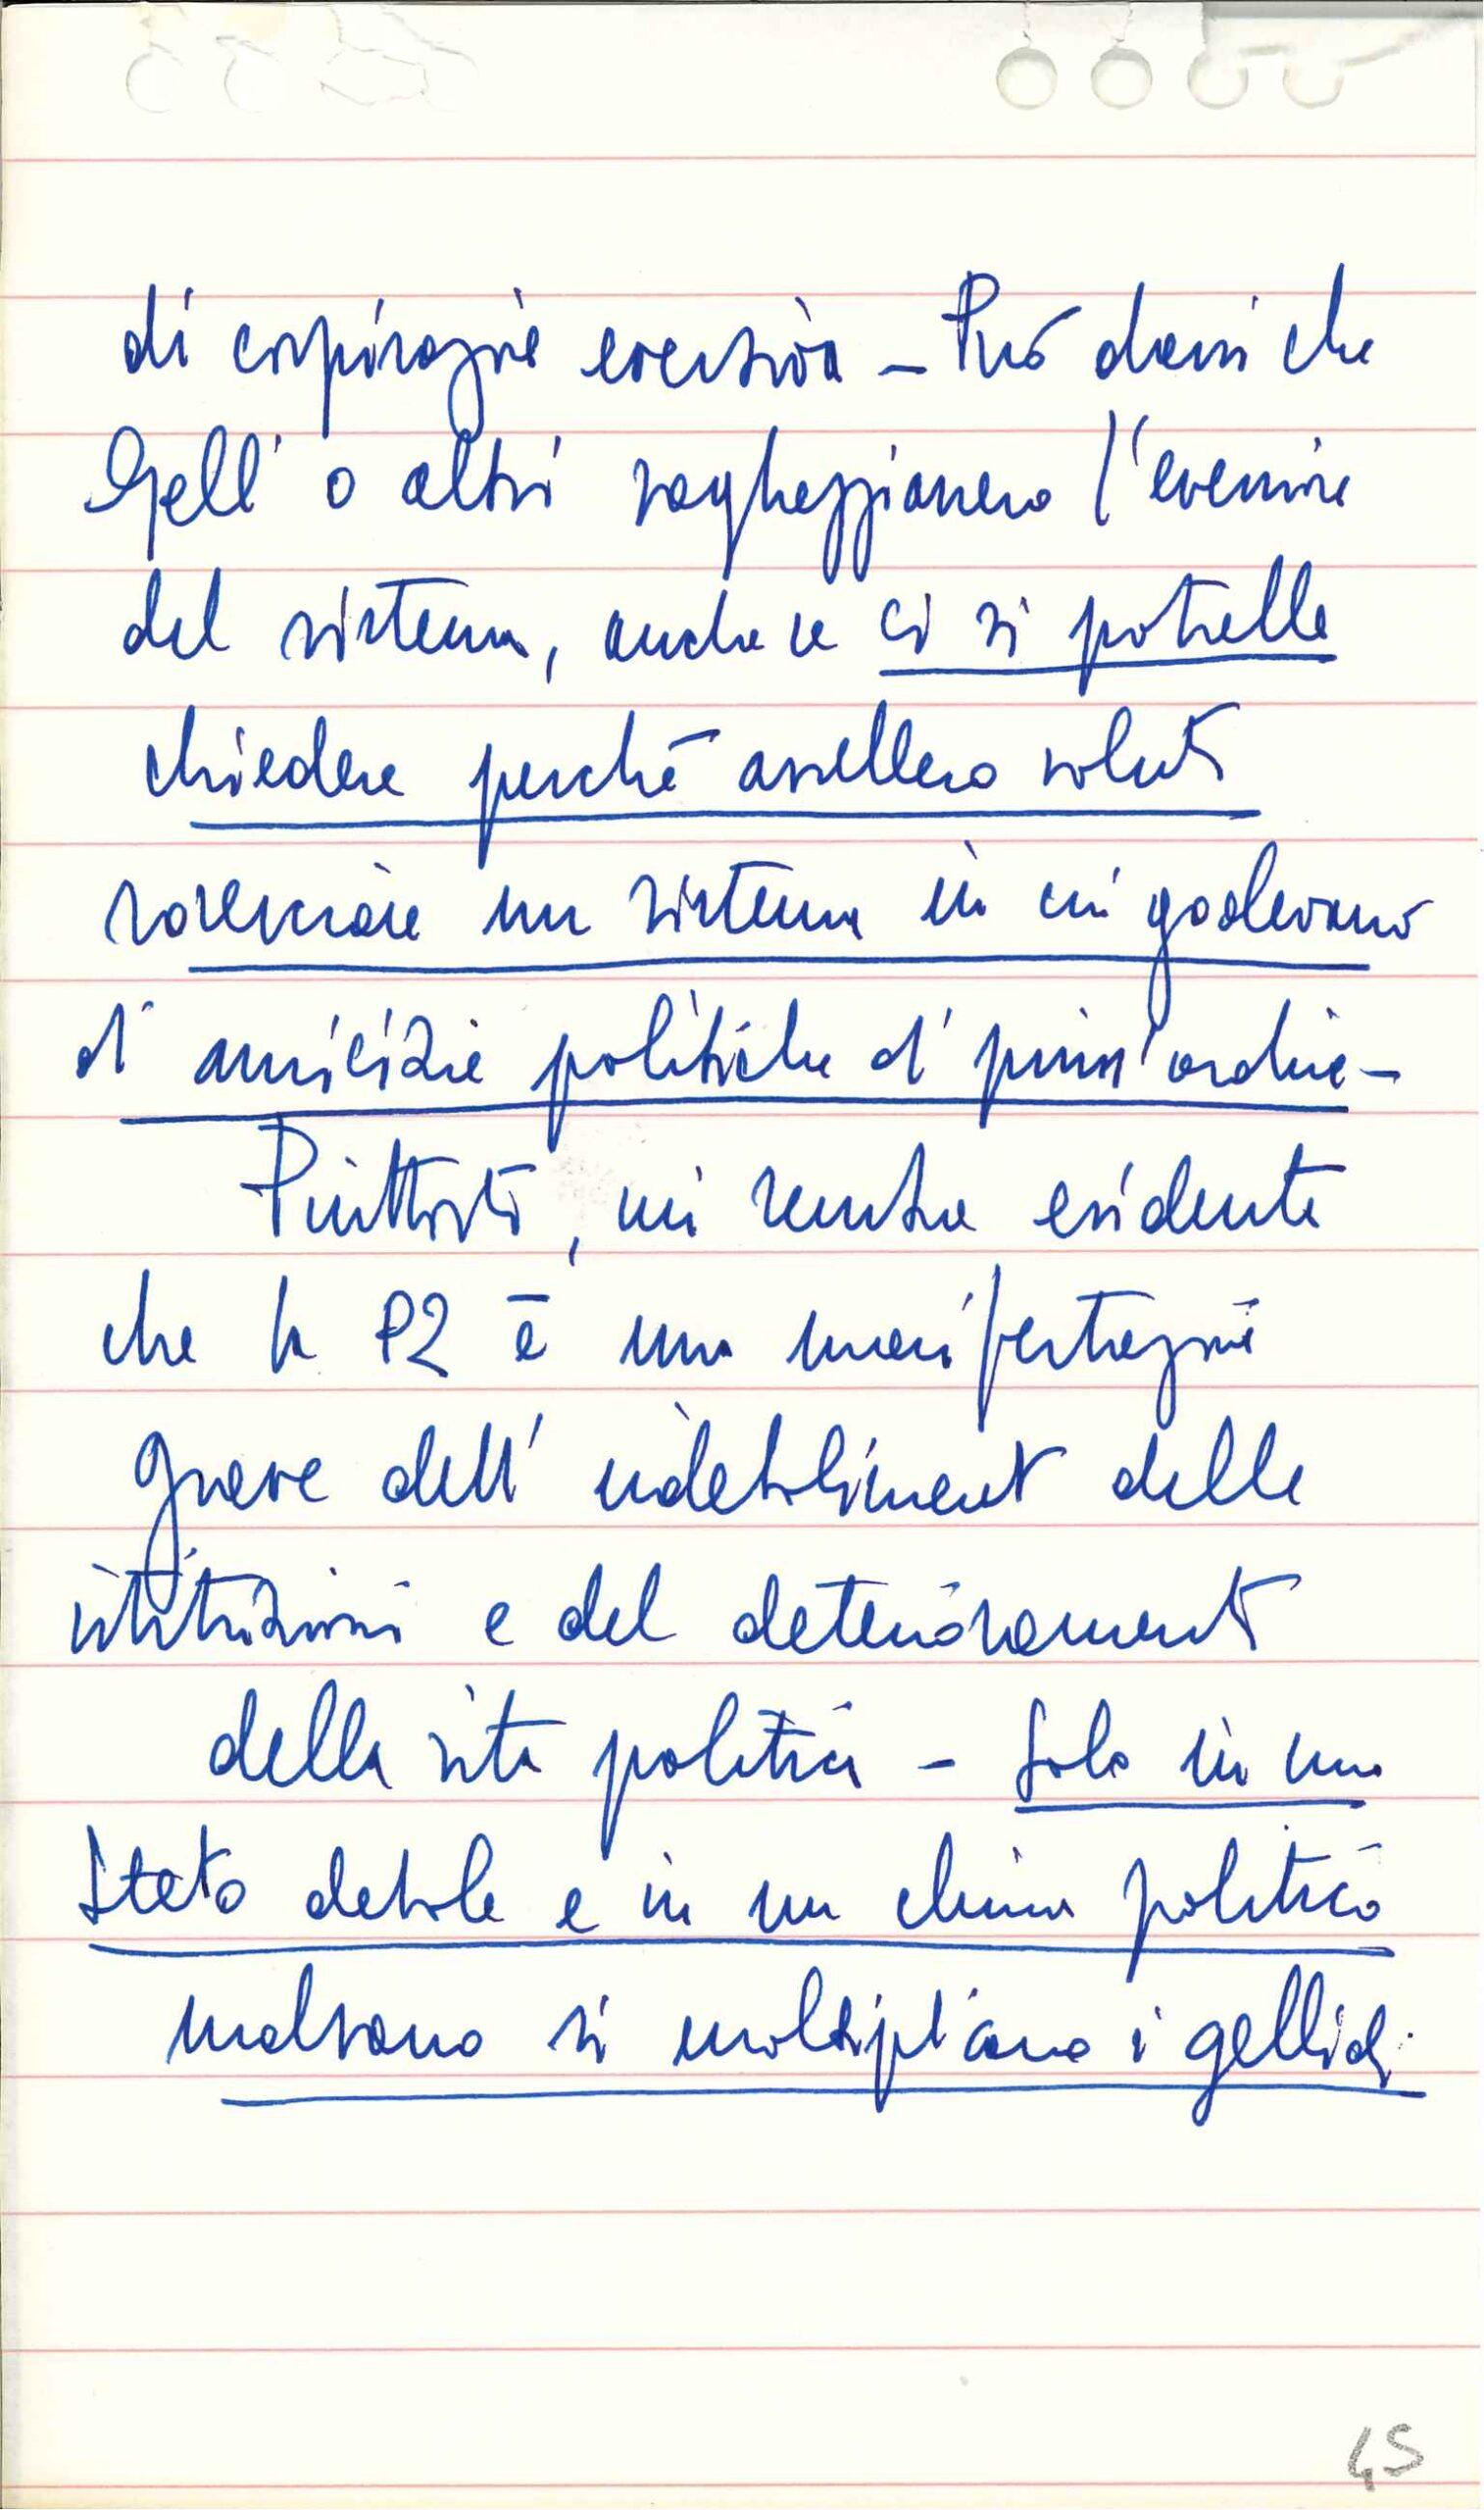 di cospirazione eversiva – Può darsi che
Gelli o altri vagheggiassero l'eversione
del sistema, anche se ci si potrebbe
chiedere perché avrebbero voluto
rovesciare un sistema in cui godevano
di amicizie politiche di prim'ordine –
Piuttosto, mi sembra evidente
che la P2 è una manifestazione
grave dell'indebolimento delle
istituzioni e del deterioramento
della vita politica – Solo in uno
Stato debole e in un clima politico
malsano si moltiplicano i gellidi.
45